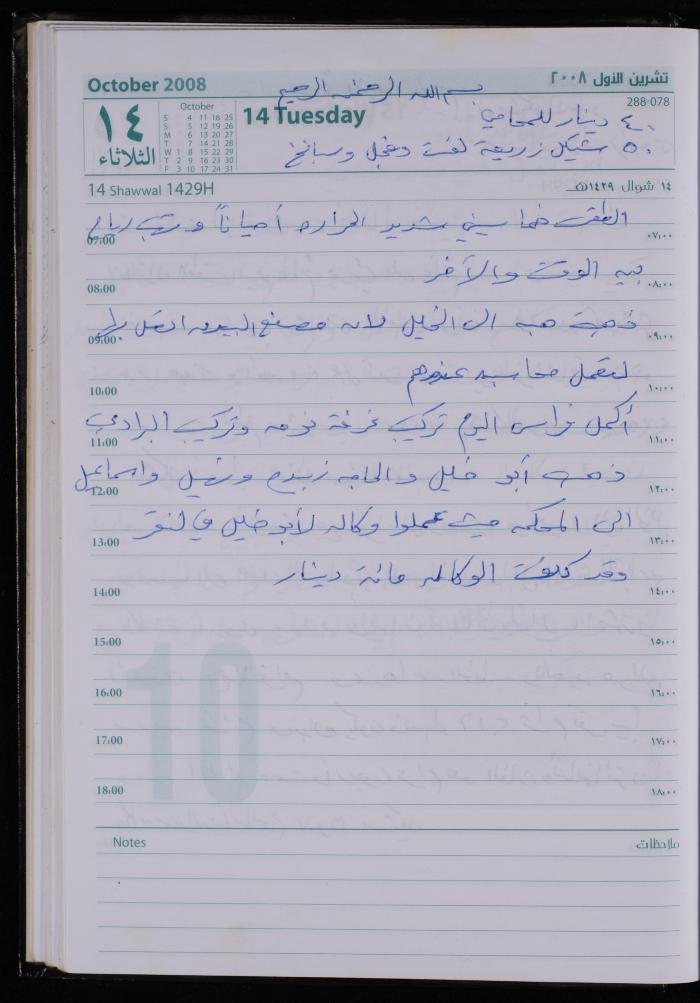 October 2008
تشرين الأول ٢٠٠٨
بسم الله الرحمن الرحيم
288-078
١٤
الثلاثاء
October
S 4 11 18 25
S 5 12 19 26
M 6 13 20 27
T 7 14 21 28
W 1 8 15 22 29
T 2 9 16 23 30
F 3 10 17 24 31
14 Tuesday
٤٠ دينار للمحامي
٥٠ شيكل زريعة لفت وفجل وسبانخ
14 Shawwal 1429H
١٤ شوال ١٤٢٩هـ
الطقس خماسيني شديد الحراره أحياناً وتهب رياح
07:00 ٠٧:٠٠
بين الوقت والآخر
08:00 ٠٨:٠٠
ذهبت هبه الى الخليل لان مصنع اتصل بها
09:00 ٠٩:٠٠
لتعمل محاسبه عندهم
10:00 ١٠:٠٠
أكمل فراس اليوم تركيب غرفة نومه وتركيب البرادي
11:00 ١١:٠٠
ذهبت أبو خليل والحاجه زبيده ونبيل واسماعيل
12:00 ١٢:٠٠
الى المحكمه حيث عملوا وكاله لأبو خليل في
13:00 ١٣:٠٠
وقد كلفت الوكاله مائة دينار
14:00 ١٤:٠٠
15:00 ١٥:٠٠
16:00 ١٦:٠٠
17:00 ١٧:٠٠
18:00 ١٨:٠٠
10
Notes ملاحظات